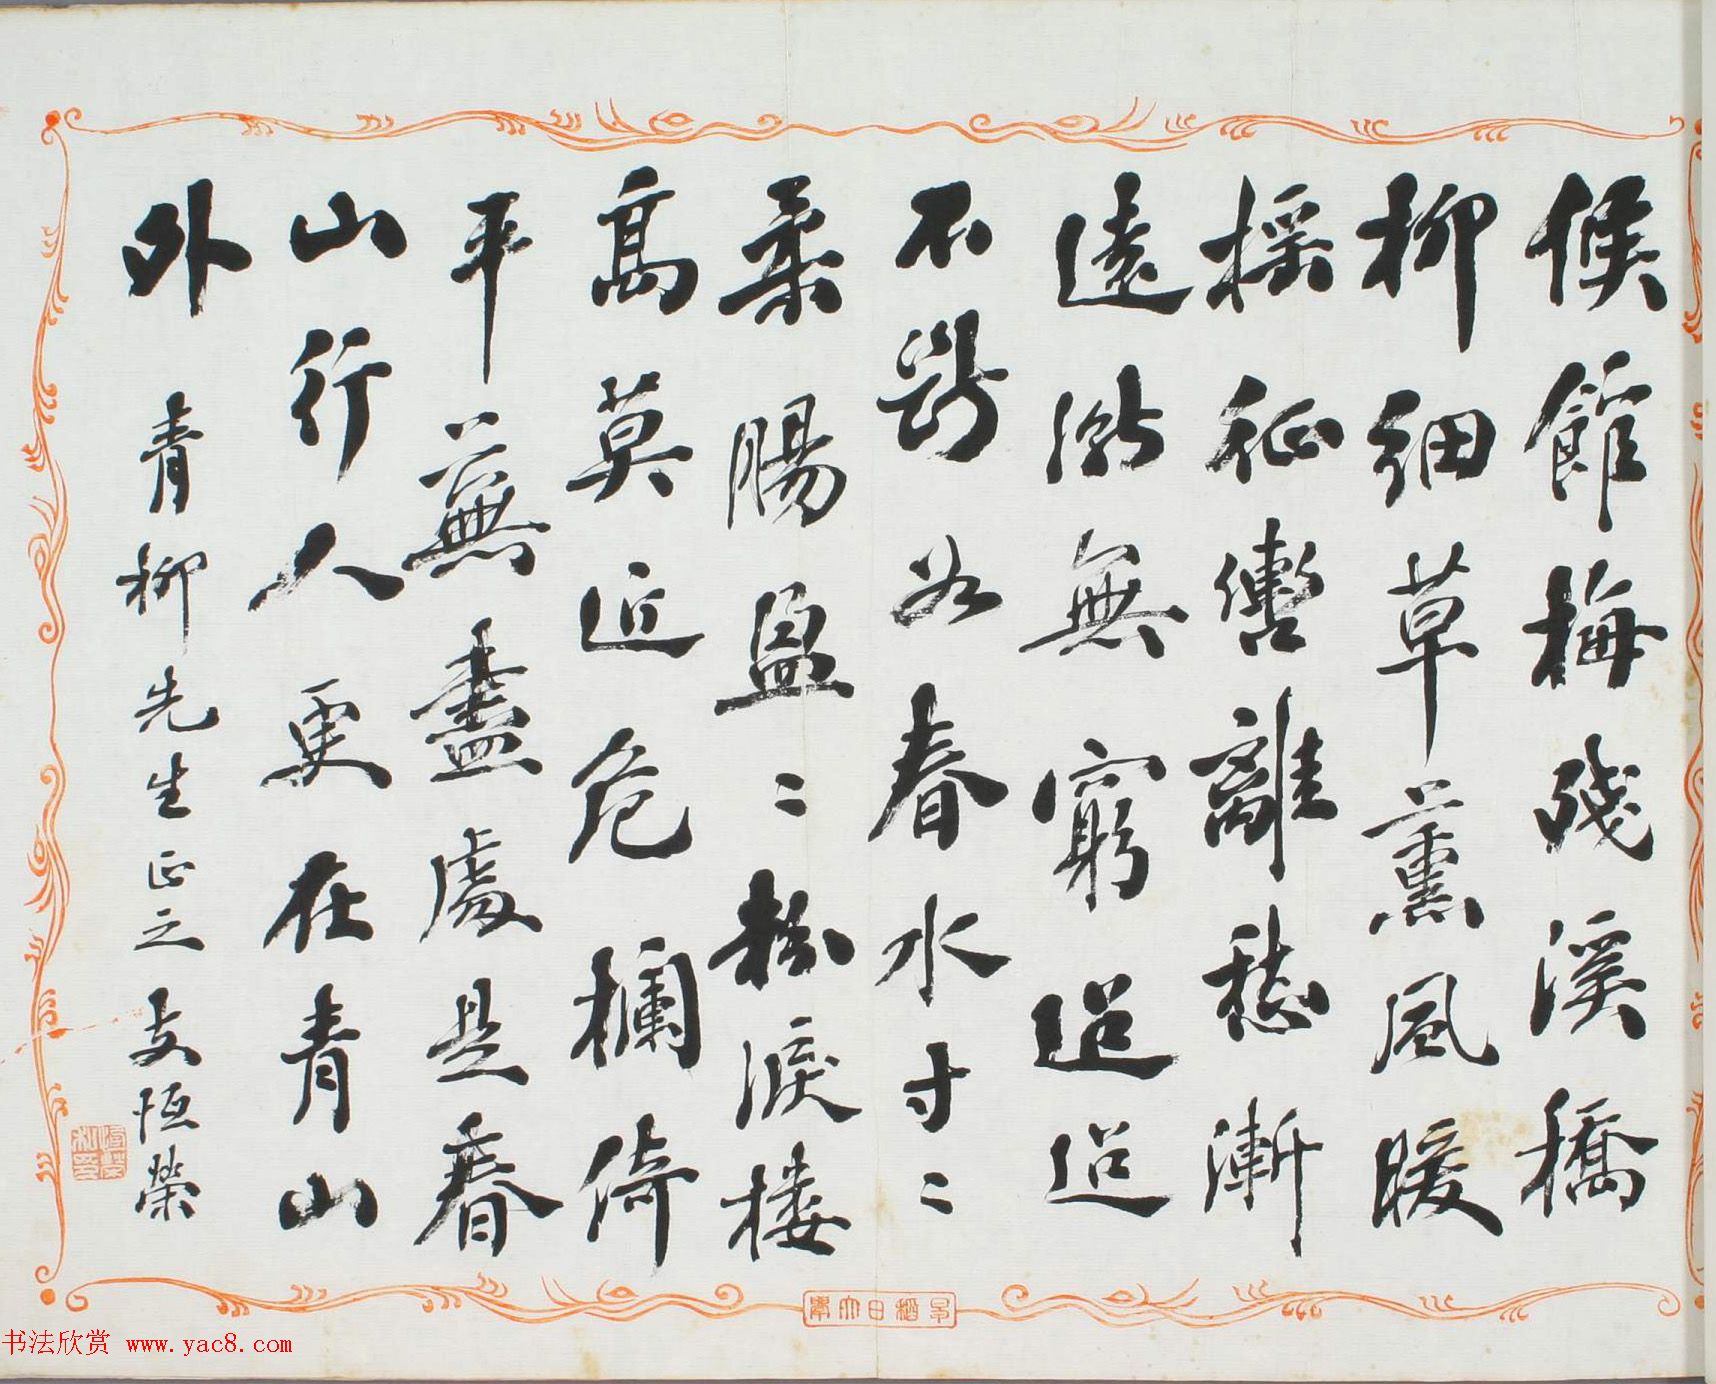 候館梅殘溪橋
柳細草薰風暖
搖征轡離愁漸
遠漸無窮迢迢
不斷如春水寸〻
柔腸盈〻粉淚樓
高莫近危欄倚
平蕪盡處是春
山行人更在青山
外 青柳先生正之 支恒榮
书法欣赏 www.yac8.com